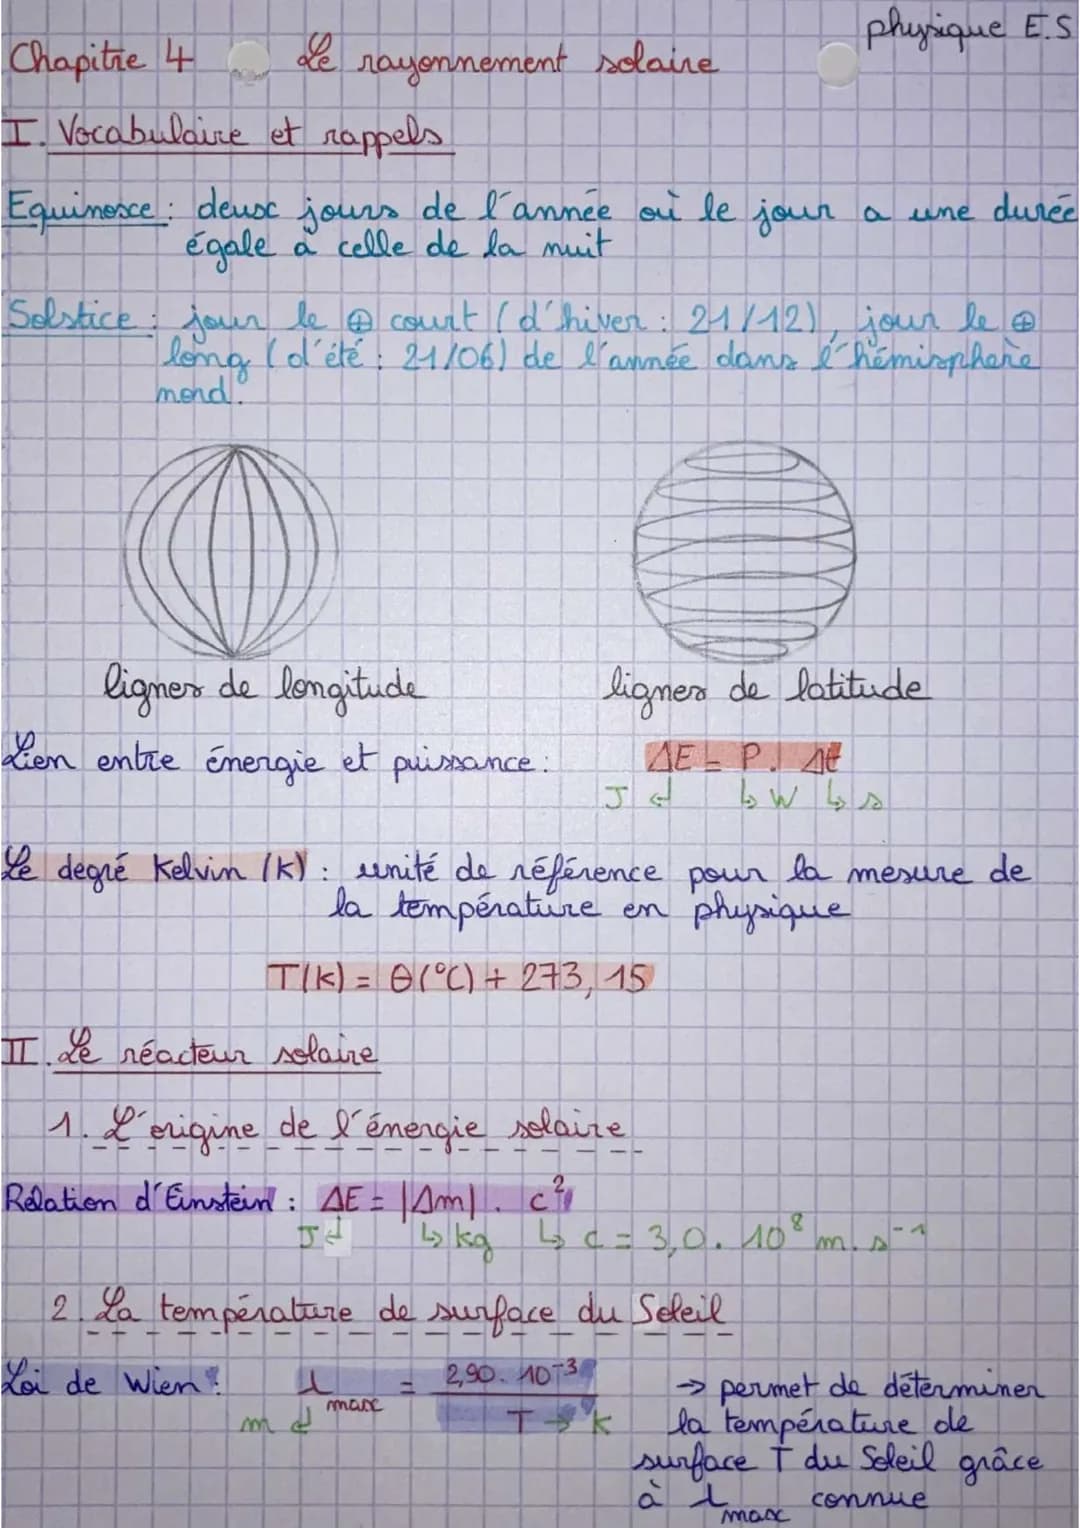 physique E.S
Chapitre 4 Le rayonnement solaire
I. Vocabulaire et rappels
Equinoxe : deux jours de l'année où le jour a une durée
égale à celle de la nuit
Solstice : jour le ⊕ court (d'hiver : 21/12), jour le ⊕
long (d'été : 21/06) de l'année dans l'hémisphère
nord.
lignes de longitude lignes de latitude
Lien entre énergie et puissance : ΔE = P. Δt
J ↲ ↳ W ↳ s
Le degré Kelvin (K) : unité de référence pour la mesure de
la température en physique
T(K) = θ(°C) + 273,15
II. Le réacteur solaire
1. L'origine de l'énergie solaire
Relation d'Einstein : ΔE = |Δm|. c²
J ↲ ↳ kg ↳ c = 3,0. 10⁸ m. s⁻¹
2. La température de surface du Soleil
Loi de Wien : λmax = 2,90. 10⁻³ / T → K → permet de déterminer
m ↲ la température de
surface T du Soleil grâce
à λmax connue